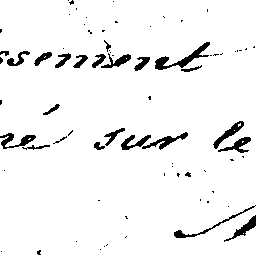 ssement
né sur le